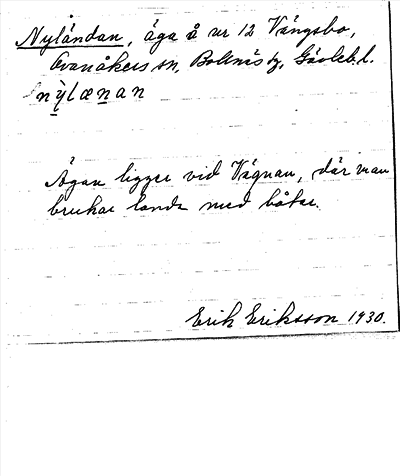 Nyländan, äga å nr 12 Vängsbo,
Ovanåkers sn, Bollnäs tg, Gävleb. l.
nỳlænan
Ägan ligger vid Vägnan, där man
brukar landa med båtar.
Erik Eriksson 1930.